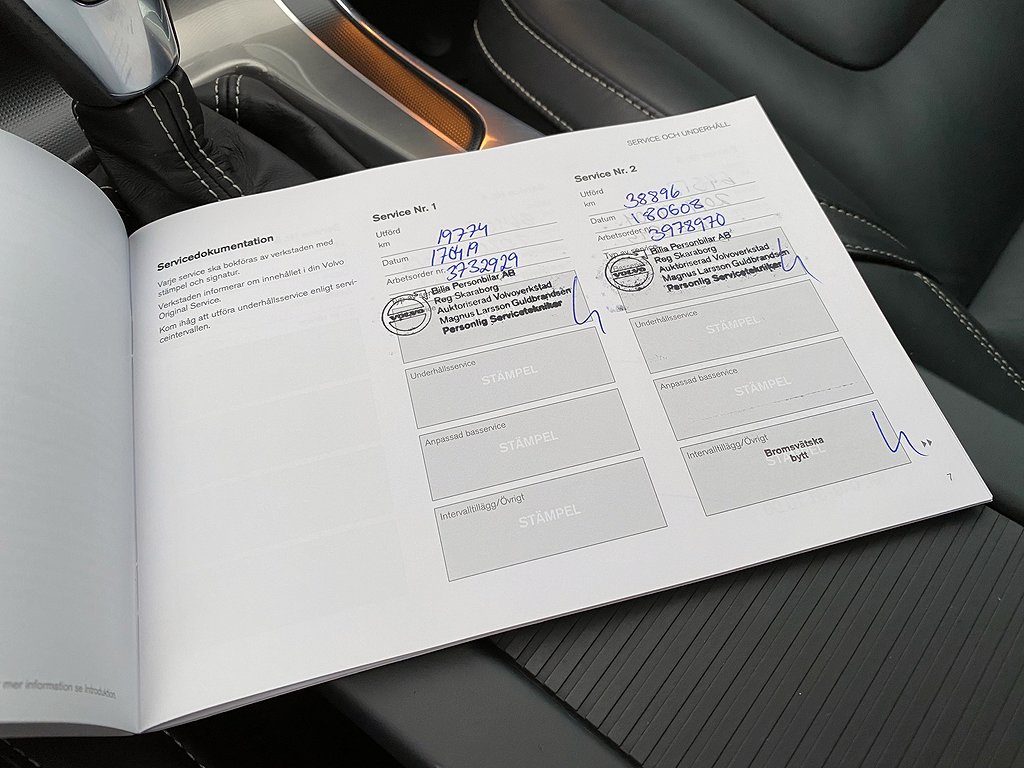 SERVICE OCH UNDERHÅLL
Servicedokumentation
Varje service ska bokföras av verkstaden med
stämpel och signatur.
Verkstaden informerar om innehållet i din Volvo
Original Service.
Kom ihåg att utföra underhållsservice enligt servi-
ceintervallen.
Service Nr. 1
Utförd
km 19774
Datum
Arbetsorder nr. 3732929
VOLVO
Bilia Personbilar AB
Reg Skaraborg
Auktoriserad Volvoverkstad
Magnus Larsson Guldbrandsén
Personlig Servicetekniker
Underhållsservice
STÄMPEL
Anpassad basservice
STÄMPEL
Intervalltillägg/Övrigt
STÄMPEL
Service Nr. 2
Utförd
km 38896
Datum 180608
Arbetsorder 3978970
VOLVO
Bilia Personbilar AB
Reg Skaraborg
Auktoriserad Volvoverkstad
Magnus Larsson Guldbrandsén
Personlig Servicetekniker
Underhållsservice
STÄMPEL
Anpassad basservice
STÄMPEL
Intervalltillägg/Övrigt
STÄMPEL
Bromsvätska
bytt
7
mer information se Introduktion